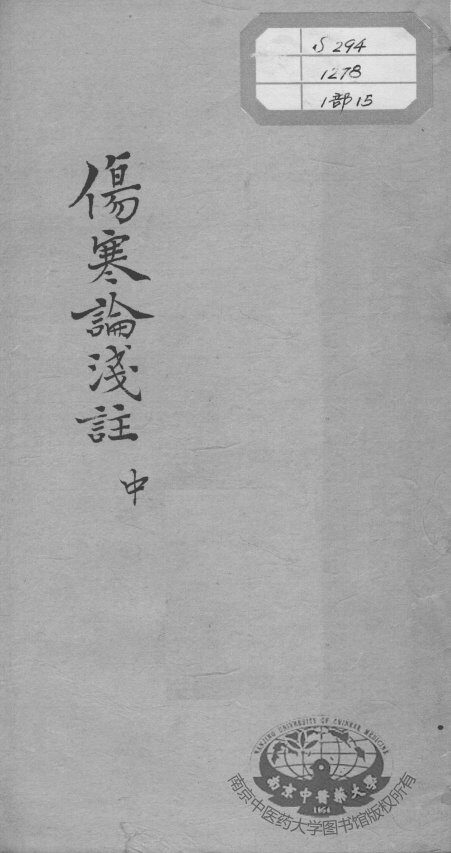 S 294
1278
1部15
傷寒論淺註 中
NANJING UNIVERSITY OF CHINESE MEDICINE
南京中醫藥大學
1954
南京中医药大学图书馆版权所有